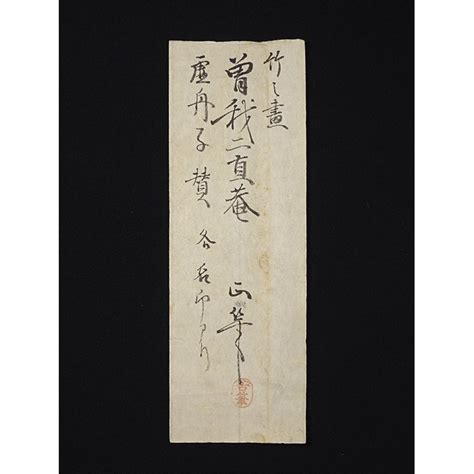 竹之畫
曽我二直菴 正筆
虚舟子賛 各名印有